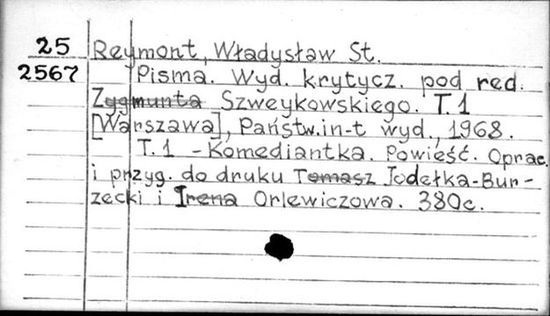 25 Reymont, Władysław St.
2567 Pisma. Wyd. krytycz. pod red.
Zygmunta Szweykowskiego. T.1
[Warszawa], Państw.in-t wyd., 1968.
T.1 - Komediantka. Powieść. Oprac.
i przyg. do druku Tomasz Jodełka-Bur-
zecki i Irena Orlewiczowa. 380c.